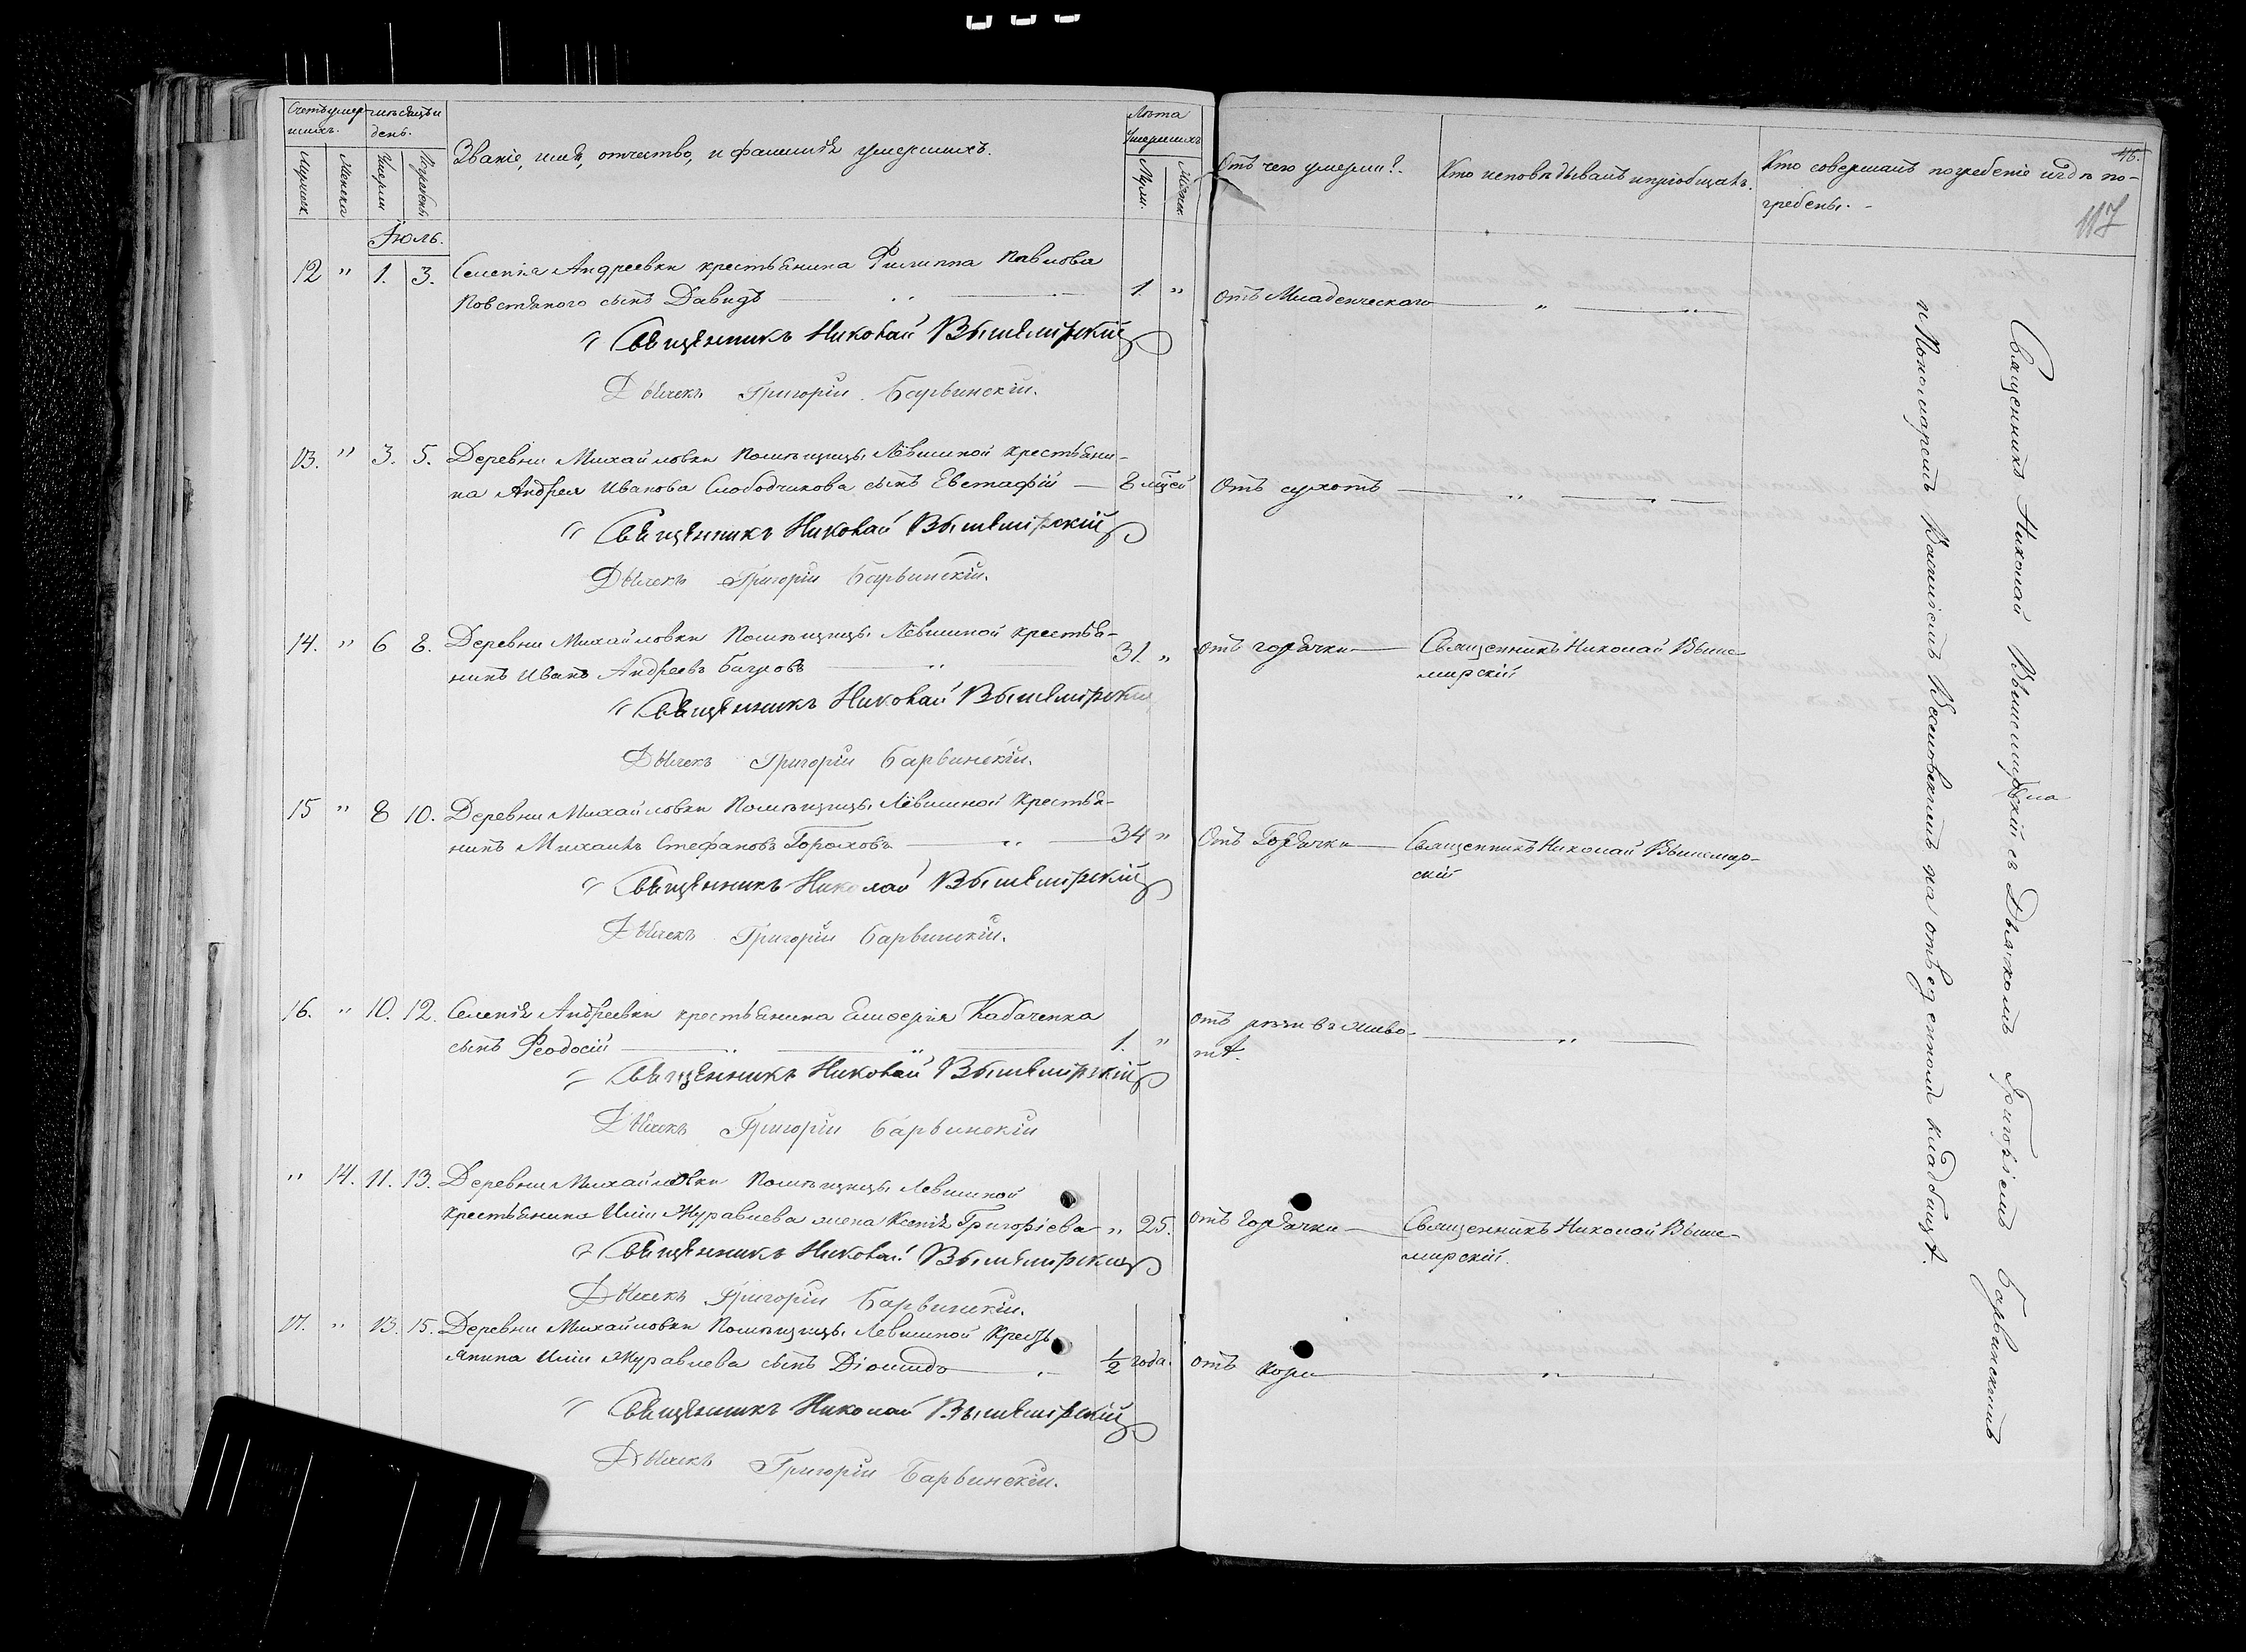 Счетъ умер-
шихъ.
мѣсяцъ и
день.
Званіе, имя, отчество, и фамилія умершихъ.
Лѣта
Умершихъ
Отъ чего умерли?
Кто исповѣдывалъ и пріобщалъ.
Кто совершалъ погребеніе и гдѣ по-
гребены.
46.
117
Мужеск
Женска
Умерли
Погребены
Муж.
Женск
Іюль.
12 " 1. 3. Селенія Андреевки крестьянина Филиппа Павлова
Повстяного сынъ Давидъ 1. " отъ Младенческаго "
Священникъ Николай Вышемірскій
Дьячекъ Григорій Барвинскій.
13. " 3. 5. Деревни Михайловки Помѣщицы Лёвшиной крестьяни-
на Андрея Иванова Слободчикова сынъ Евстафій 8 мцей Отъ сухотъ "
Священникъ Николай Вышемірскій
Дьячекъ Григорій Барвинскій.
14. " 6 8. Деревни Михайловки Помѣщицы Лёвшиной крестья-
нинъ Иванъ Андреевъ 31. " отъ горячки Священникъ Николай Выше-
мирскій
Священникъ Николай Вышемірскій
Дьячекъ Григорій Барвинскій.
15 " 8 10. Деревни Михайловки Помѣщицы Лёвшиной Крестья-
нинъ Михаилъ Стефановъ Гороховъ 34 " Отъ Горячки Священникъ Николай Вышемир-
скій
Священникъ Николай Вышемірскій
Дьячекъ Григорій Барвинскій.
16. " 10. 12. Селенія Андреевки крестьянина Елиѳерія Кабаченка
сынъ Феодосій 1. " отъ рѣзи въ живо-
тѣ. "
Священникъ Николай Вышемірскій
Дьячекъ Григорій Барвинскій
" 14. 11. 13. Деревни Михайловки Помѣщицы Левшиной
крестьянина Иліи Журавлева жена Ксенія Григорієва " 25. отъ Горячки Священникъ Николай Выше-
мирскій.
Священникъ Николай Вышемірскій
Дьячекъ Григорій Барвинскій.
17. " 13. 15. Деревни Михайловки Помѣщицы Левшиной Кресть
янина Иліи Журавлева сынъ Діомидъ 1/2 года. отъ Кори "
Священникъ Николай Вышемірскій
Дьячекъ Григорій Барвинскій.
Священникъ Николай Вышемирскій съ Дьячкомъ Григоріемъ Барвинскимъ
и Пономаремъ Василіемъ на отведенномъ кладбищѣ.